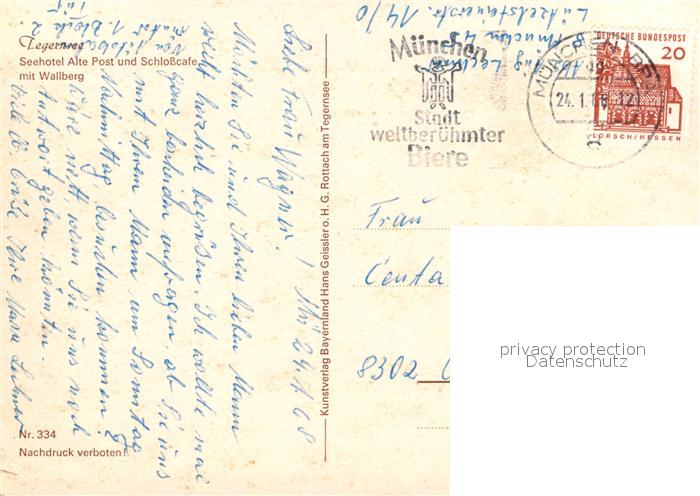 Tegernsee
Seehotel Alte Post und Schloßcafe
mit Wallberg
Mü 24.1.68
Liebe Frau Wagner!
Möchten Sie und Ihren lieben Mann
recht herzlich begrüßen. Ich wollte mai
ganz bescheiden anfragen, ob Sie uns
mit Ihrem Mann am Sonntag
Nahmittag besuchen kommen?
Wäre nett, wenn Sie uns noch
Antwort geben könnten.
Viele Grüße Ihre
Nr. 334
Nachdruck verboten!
Kunstverlag Bayernland Hans Geissler o. H. G. Rottach am Tegernsee
München 4
14/0
München
Stadt
weltberühmter
Biere
MÜNCHEN
24.1.68
DEUTSCHE BUNDESPOST
20
LORSCH/HESSEN
Frau
Centa
8302
privacy protection
Datenschutz